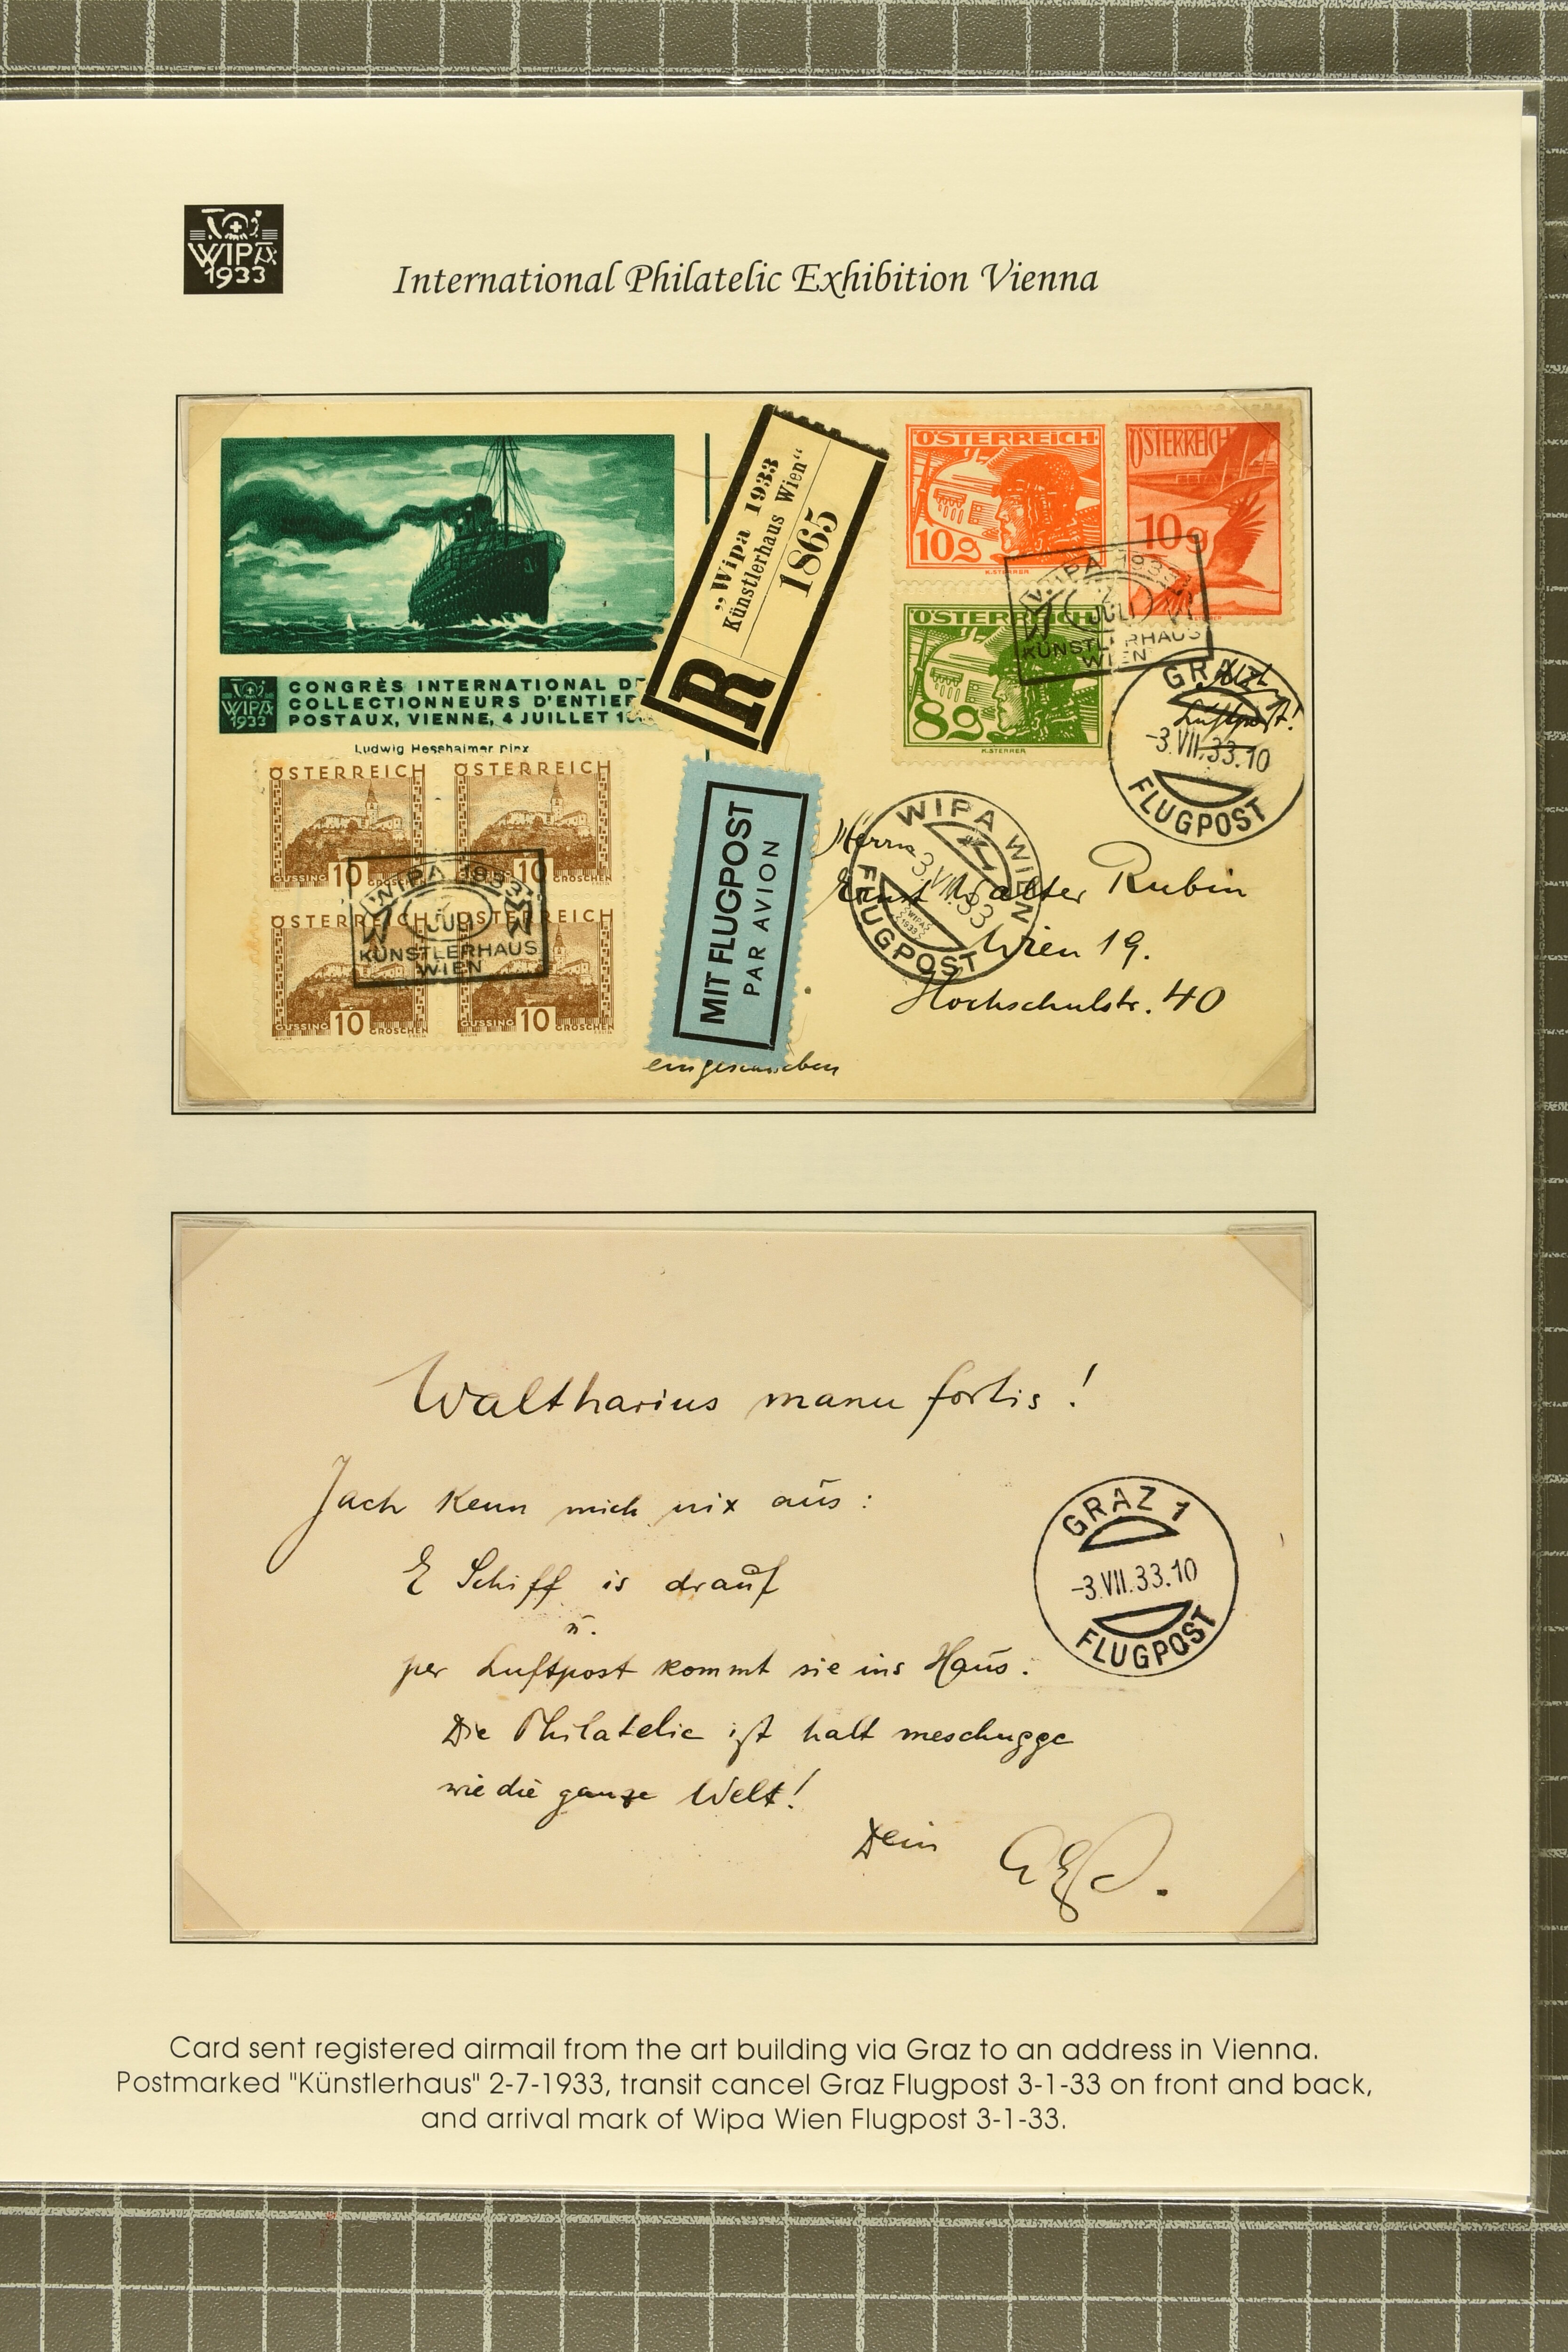 WIPA
1933
International Philatelic Exhibition Vienna
„Wipa 1933
Künstlerhaus Wien“
1865
R
ÖSTERREICH
10g
K.STERRER
ÖSTERREICH
10g
ÖSTERREICH
8g
K.STERRER
WIPA 1933
JULI
KÜNSTLERHAUS
WIEN
Luftpost!
-3.VII.33.10
FLUGPOST
WIPA
1933
CONGRÈS INTERNATIONAL DE
COLLECTIONNEURS D'ENTIER
POSTAUX, VIENNE, 4 JUILLET
Ludwig Hesshaimer pinx
ÖSTERREICH
10
GÜSSING GROSCHEN
ÖSTERREICH
10
GROSCHEN
ÖSTERREICH
10
GÜSSING GROSCHEN
ÖSTERREICH
10
GÜSSING GROSCHEN
WIPA 1933
JULI
KÜNSTLERHAUS
WIEN
MIT FLUGPOST
PAR AVION
WIPA WIEN
3.VII.33
FLUGPOST
Herrn
Ernst Walter Rubin
Wien 19.
Hochschulstr. 40
eingeschrieben
Waltharius manu fortis!
Jach kenn mich nix aus:
E Schiff is drauf
u.
per Luftpost kommt sie ins Haus.
Die Philatelie ist halt meschugge
wie die ganze Welt!
Dein
GRAZ 1
-3.VII.33.10
FLUGPOST
Card sent registered airmail from the art building via Graz to an address in Vienna.
Postmarked "Künstlerhaus" 2-7-1933, transit cancel Graz Flugpost 3-1-33 on front and back,
and arrival mark of Wipa Wien Flugpost 3-1-33.